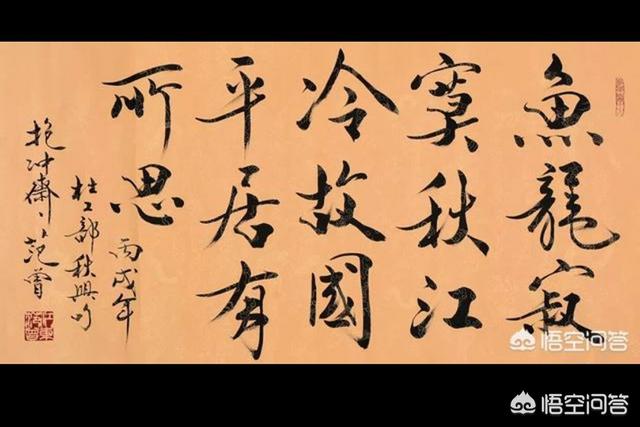 魚龍寂
寞秋江
冷故國
平居有
所思
丙戌年
杜工部秋興句
抱冲齋主范曾
悟空问答
悟空问答